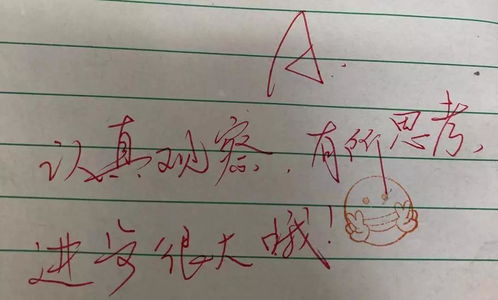 A.
认真观察，有所思考，
进步很大哦！